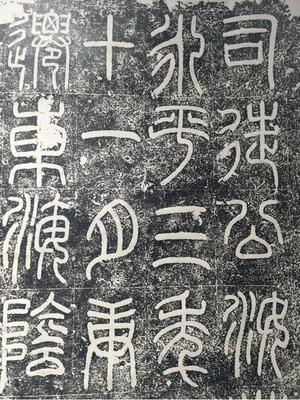 司徒公汝
永平三年
十一月庚
遷東海陰